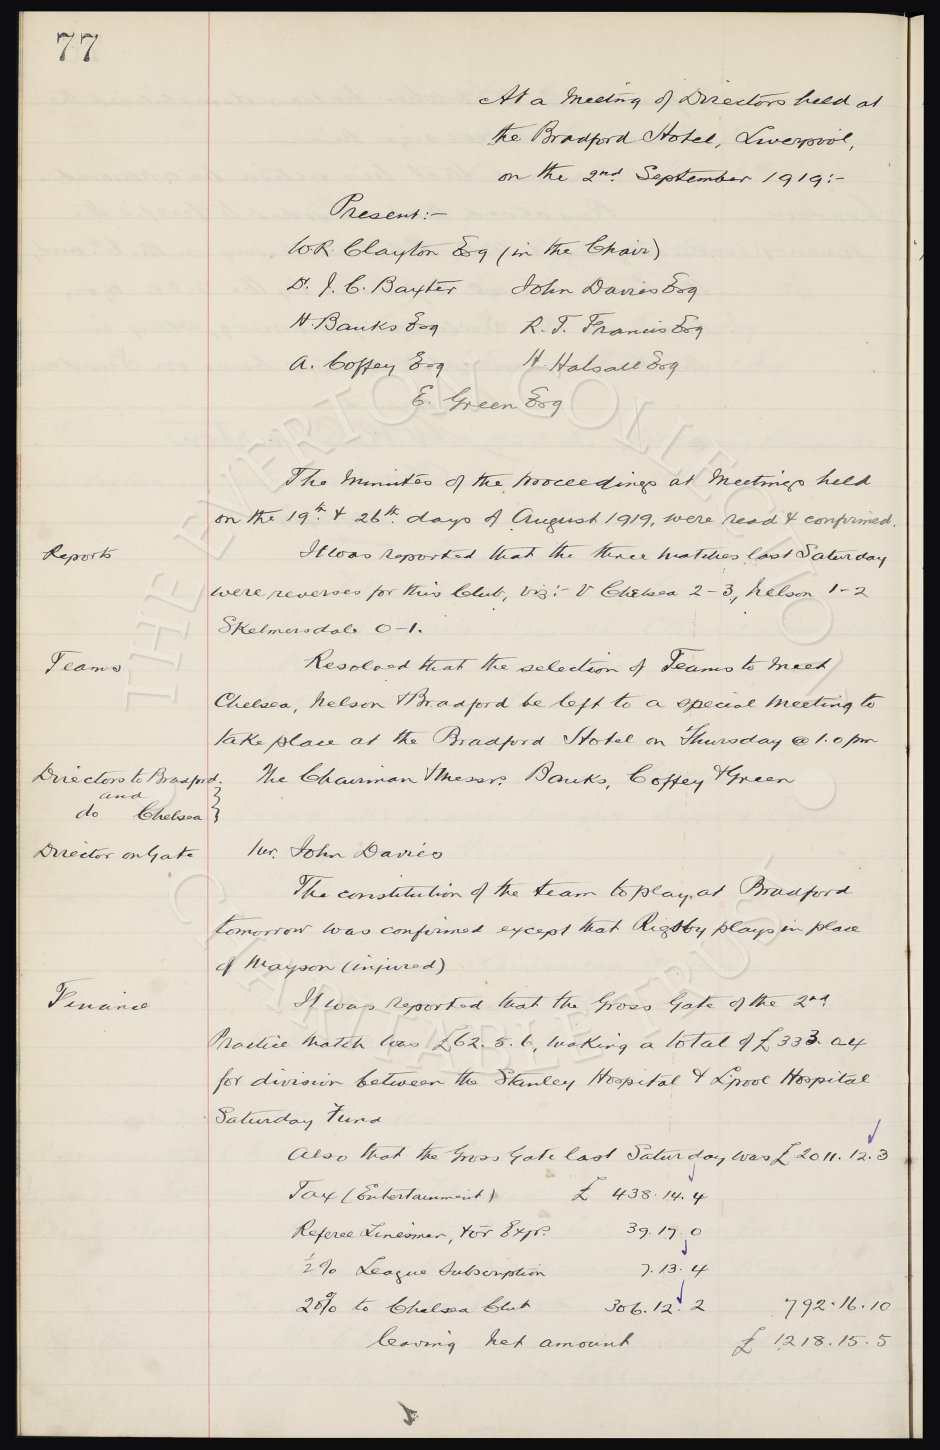 77
At a Meeting of Directors held at
the Bradford Hotel, Liverpool,
on the 2nd September 1919:-
Present:-
W.R. Clayton Esq (in the Chair)
Dr. J. C. Baxter John Davies Esq
H. Banks Esq R. T. Francis Esq
A. Coffey Esq H. Halsall Esq
E. Green Esq
The Minutes of the proceedings at Meetings held
on the 19th & 26th days of August 1919, were read & confirmed.
Reports It was reported that the three matches last Saturday
were reverses for this Club, viz:- v Chelsea 2-3, Nelson 1-2
Skelmersdale 0-1.
Teams Resolved that the selection of Teams to meet
Chelsea, Nelson & Bradford be left to a special meeting to
take place at the Bradford Hotel on Thursday @ 1.0 pm
Directors to Bradford. The Chairman & Messrs. Banks, Coffey & Green
and
do Chelsea
Director on Gate Mr. John Davies
The constitution of the team to play at Bradford
tomorrow was confirmed except that Rigsby plays in place
of Mayson (injured)
Finance It was reported that the Gross Gate of the 2nd
Practice Match was £62.5.6, making a total of £333.0.4
for division between the Stanley Hospital & L'pool Hospital
Saturday Fund
Also that the Gross Gate last Saturday was £2011.12.3
Tax (Entertainment) £ 438.14.4
Referee Linesmen, & Expr. 39.17.0
½% League Subscription 7.13.4
20% to Chelsea Club 306.12.2 792.16.10
leaving net amount £ 1218.15.5
THE EVERTON COLLECTION
CHARITABLE TRUST